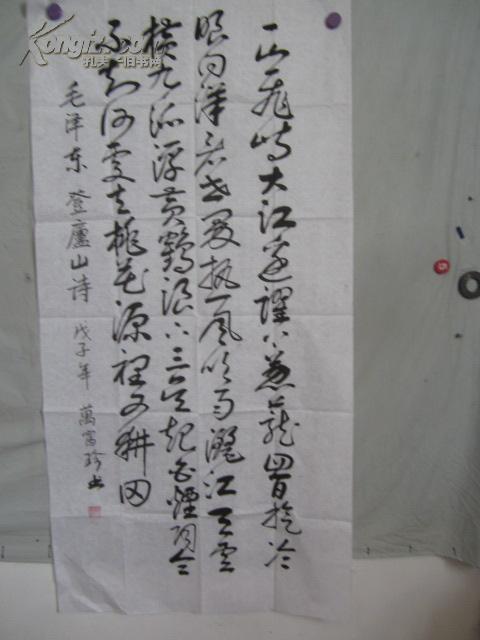 一山飛峙大江邊躍上葱蘢四百旋冷
眼向洋看世界热風吹雨灑江天雲
橫九派浮黃鶴浪下三吴起白煙陶令
不知何处去桃花源裡可耕田
毛泽东 登廬山诗 戊子年 萬富珍书
Kongfz.com
孔夫子旧书网